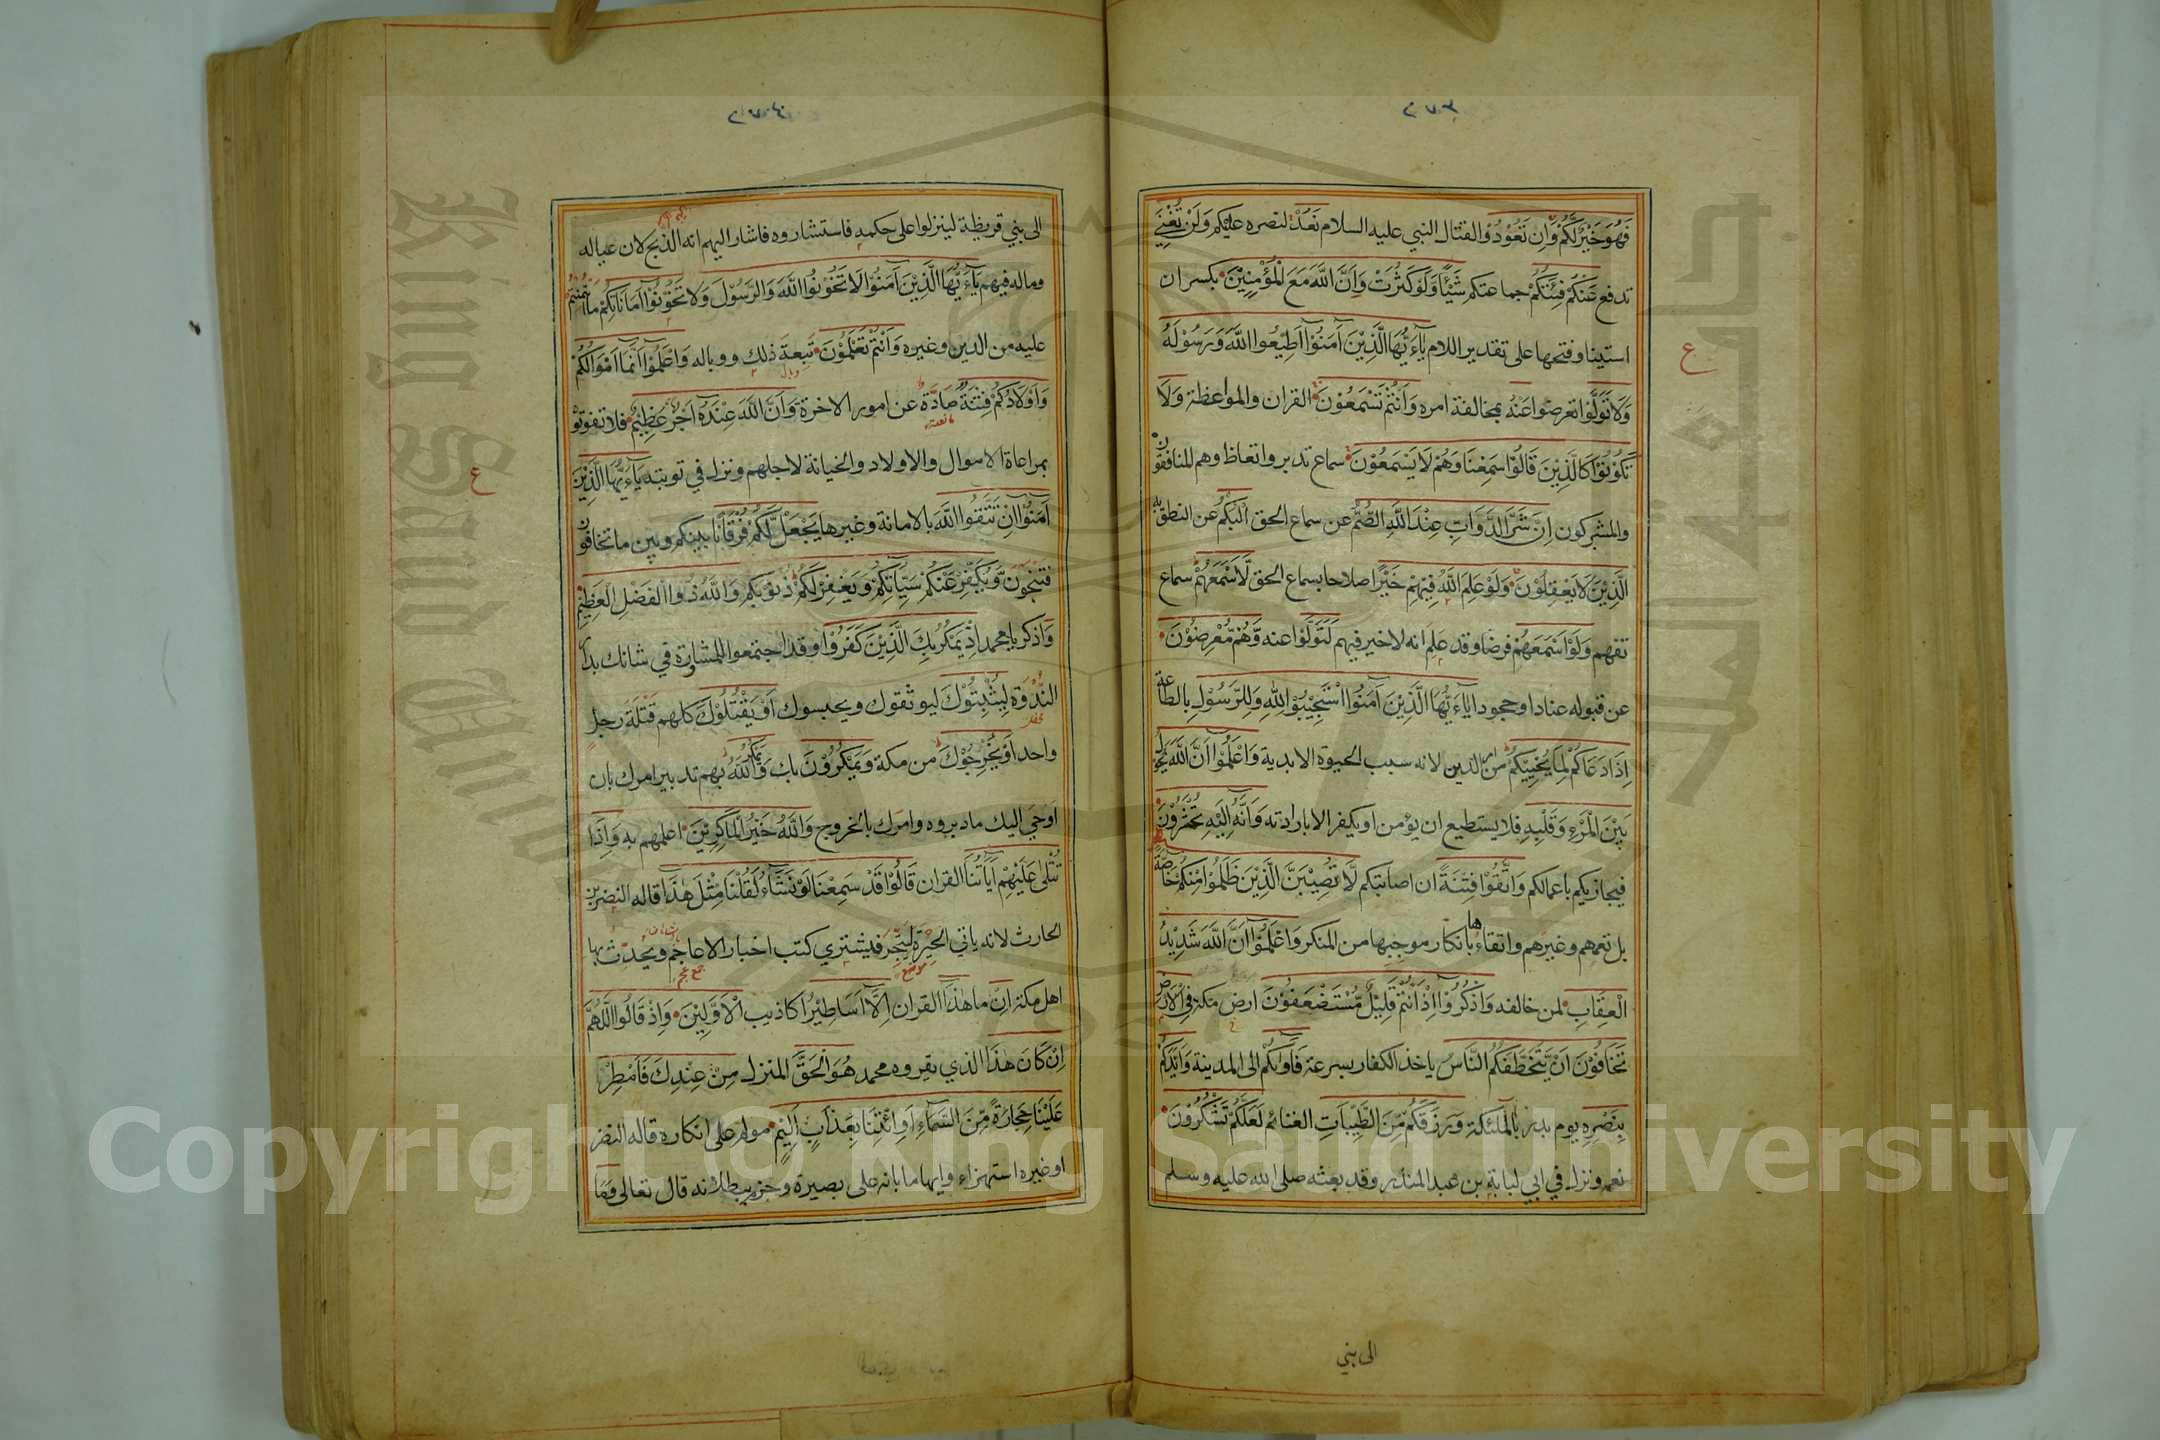 فَهُوَ خَيْرٌ لَّكُمْ وَاِنْ تَعُوْدُوْا لقتال النبي عليه السلام نَعُدْ لنصره عليكم وَلَنْ تُغْنِيَ
تدفع عَنْكُمْ فِئَتُكُمْ جماعتكم شَيْئًا وَّلَوْ كَثُرَتْ وَاِنَّ اللّٰهَ مَعَ الْمُؤْمِنِيْنَ بكسر ان
استينافا وفتحها على تقدير اللام يٰاَيُّهَا الَّذِيْنَ اٰمَنُوْا اَطِيْعُوا اللّٰهَ وَرَسُوْلَهُ
وَلَا تَوَلَّوْا تعرضوا عَنْهُ بمخالفة امره وَاَنْتُمْ تَسْمَعُوْنَ القران والمواعظ وَلَا
تَكُوْنُوْا كَالَّذِيْنَ قَالُوْا سَمِعْنَا وَهُمْ لَا يَسْمَعُوْنَ سماع تدبر واتعاظ وهم المنافقون
والمشركون اِنَّ شَرَّ الدَّوَابِّ عِنْدَ اللّٰهِ الصُّمُّ عن سماع الحق الْبُكْمُ عن النطق به
الَّذِيْنَ لَا يَعْقِلُوْنَ وَلَوْ عَلِمَ اللّٰهُ فِيْهِمْ خَيْرًا صلاحا بسماع الحق لَّاَسْمَعَهُمْ سماع
تفهم وَلَوْ اَسْمَعَهُمْ فرضا وقد علم انه لا خير فيهم لَتَوَلَّوْا عنه وَّهُمْ مُّعْرِضُوْنَ
عن قبوله عنادا وجحودا يٰاَيُّهَا الَّذِيْنَ اٰمَنُوا اسْتَجِيْبُوْا لِلّٰهِ وَلِلرَّسُوْلِ بالطاعة
اِذَا دَعَاكُمْ لِمَا يُحْيِيْكُمْ من امر الدين لانه سبب الحيوة الابدية وَاعْلَمُوْا اَنَّ اللّٰهَ يَحُوْلُ
بَيْنَ الْمَرْءِ وَقَلْبِهِ فلا يستطيع ان يؤمن او يكفر الا بارادته وَاَنَّهُ اِلَيْهِ تُحْشَرُوْنَ
فيجازيكم باعمالكم وَاتَّقُوْا فِتْنَةً ان اصابتكم لَّا تُصِيْبَنَّ الَّذِيْنَ ظَلَمُوْا مِنْكُمْ خَاصَّةً
بل تعمهم وغيرهم واتقاءها بانكار موجبها من المنكر وَاعْلَمُوْا اَنَّ اللّٰهَ شَدِيْدُ
الْعِقَابِ لمن خالفه وَاذْكُرُوْا اِذْ اَنْتُمْ قَلِيْلٌ مُّسْتَضْعَفُوْنَ ارض مكة فِي الْاَرْضِ
تَخَافُوْنَ اَنْ يَّتَخَطَّفَكُمُ النَّاسُ ياخذ الكفار بسرعة فَاٰوٰىكُمْ الى المدينة وَاَيَّدَكُمْ
بِنَصْرِهِ يوم بدر بالملئكة وَرَزَقَكُمْ مِّنَ الطَّيِّبٰاتِ الغنائم لَعَلَّكُمْ تَشْكُرُوْنَ
نعمه ونزل في ابي لبابة بن عبد المنذر وقد بعثه صلى الله عليه وسلم
الى بني
الى بني قريظة لينزلوا على حكمه فاستشاروه فاشار اليهم انه الذبح لان عياله
وماله فيهم يٰاَيُّهَا الَّذِيْنَ اٰمَنُوْا لَا تَخُوْنُوا اللّٰهَ وَالرَّسُوْلَ وَلَا تَخُوْنُوْا اَمَانَاتِكُمْ ما ائتمنتم
عليه من الدين وغيره وَاَنْتُمْ تَعْلَمُوْنَ تبعة ذلك ووباله وَاعْلَمُوْا اَنَّمَا اَمْوَالُكُمْ
وَاَوْلَادُكُمْ فِتْنَةٌ صادّة عن امور الاخرة وَاَنَّ اللّٰهَ عِنْدَهُ اَجْرٌ عَظِيْمٌ فلا تفوتوه
بمراعاة الاموال والاولاد والخيانة لاجلهم ونزل في توبته يٰاَيُّهَا الَّذِيْنَ
اٰمَنُوْا اِنْ تَتَّقُوا اللّٰهَ بالامانة وغيرها يَجْعَلْ لَّكُمْ فُرْقَانًا بينكم وبين ما تخافون
فتنجون وَّيُكَفِّرْ عَنْكُمْ سَيِّاٰتِكُمْ وَيَغْفِرْ لَكُمْ ذنوبكم وَاللّٰهُ ذُو الْفَضْلِ الْعَظِيْمِ
وَاذكر يا محمد اِذْ يَمْكُرُ بِكَ الَّذِيْنَ كَفَرُوْا وقد اجتمعوا للمشاورة في شانك بدار
الندوة لِيُثْبِتُوْكَ ليوثقوك ويحبسوك اَوْ يَقْتُلُوْكَ كلهم قتلة رجل
واحد اَوْ يُخْرِجُوْكَ من مكة وَيَمْكُرُوْنَ بك وَيَمْكُرُ اللّٰهُ بهم تدبير امرك بان
اوحى اليك ما دبروه وامرك بالخروج وَاللّٰهُ خَيْرُ الْمَاكِرِيْنَ اعلمهم به وَاِذَا
تُتْلٰى عَلَيْهِمْ اٰيَاتُنَا القران قَالُوْا قَدْ سَمِعْنَا لَوْ نَشَاءُ لَقُلْنَا مِثْلَ هٰذَا قاله النضر بن
الحارث لانه ياتي الحيرة ليتجر فيشتري كتب اخبار الاعاجم ويحدّث بها
اهل مكة اِنْ ما هٰذَا القران اِلَّا اَسَاطِيْرُ اكاذيب الْاَوَّلِيْنَ وَاِذْ قَالُوا اللّٰهُمَّ
اِنْ كَانَ هٰذَا الذي يقروه محمد هُوَ الْحَقَّ المنزل مِنْ عِنْدِكَ فَاَمْطِرْ
عَلَيْنَا حِجَارَةً مِّنَ السَّمَاءِ اَوِ ائْتِنَا بِعَذَابٍ اَلِيْمٍ مولم على انكاره قاله النضر
او غيره استهزاء وايهاما بانه على بصيرة وجزم ببطلانه قال تعالى وَمَا
ع
ع
King Saud University
جامعة الملك سعود
Copyright © King Saud University